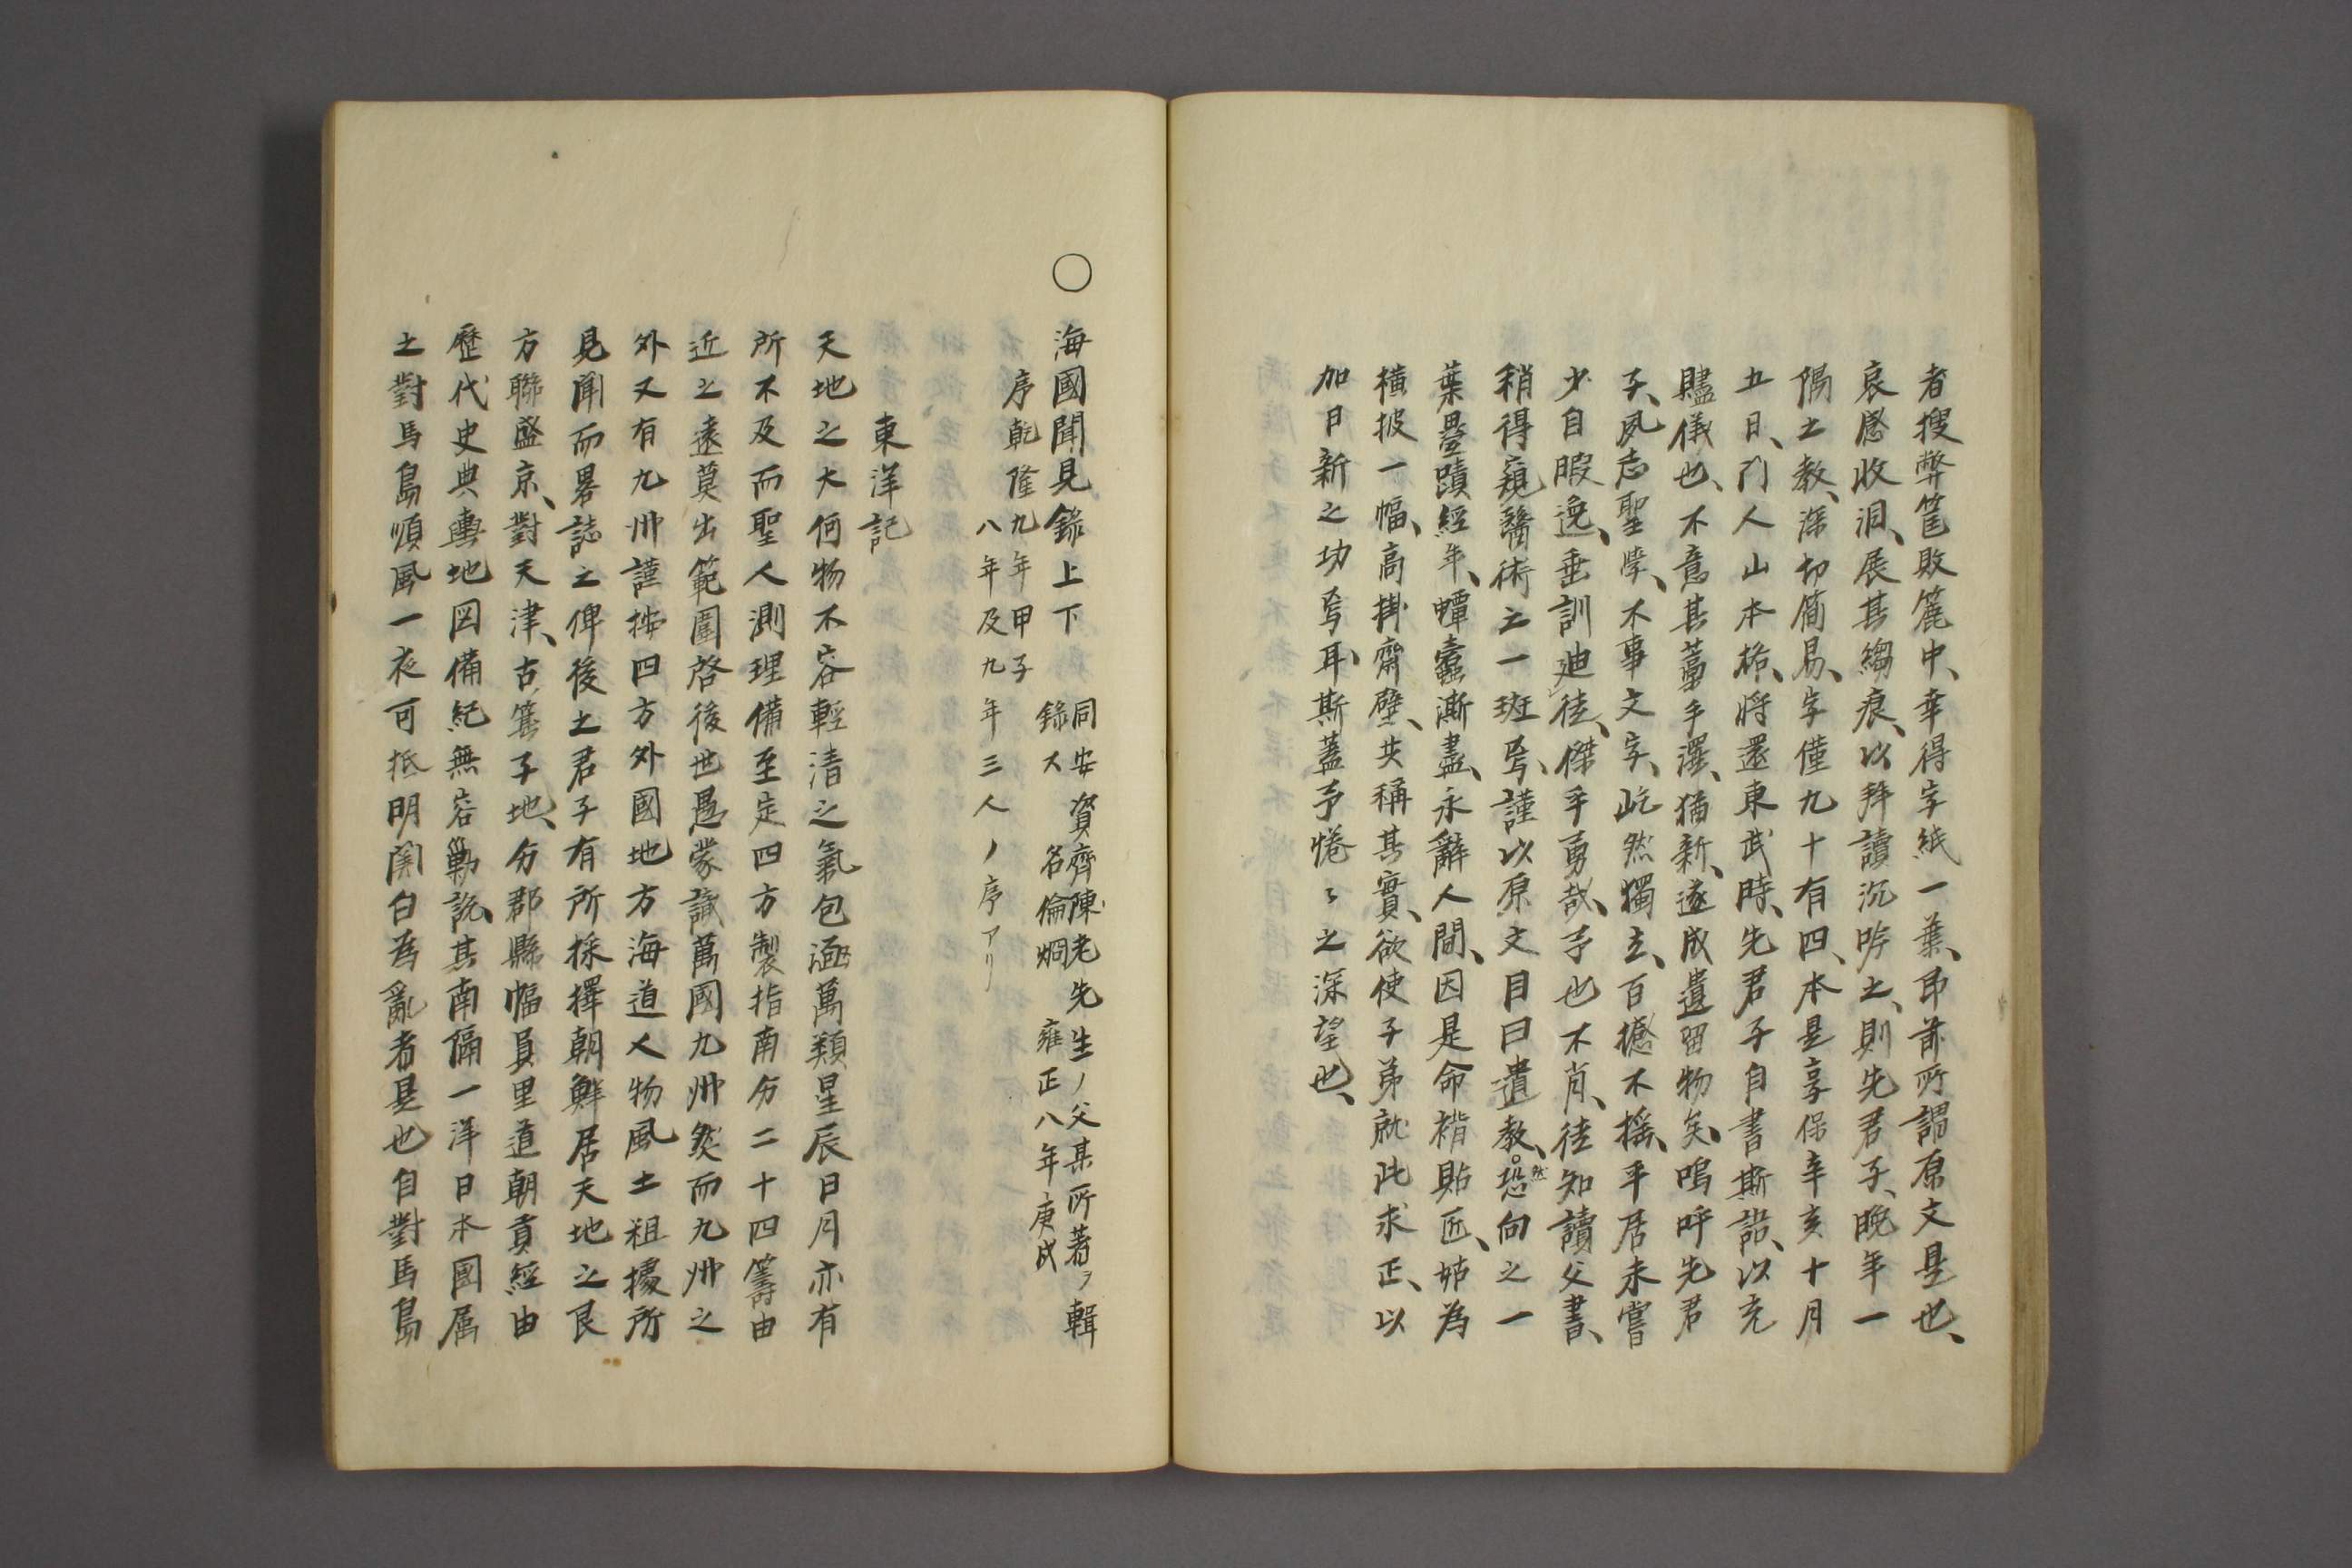 者搜弊筐敗簏中、幸得字紙一葉、即前所謂原文是也、
哀感收淚、展其縐痕、以拜讀沉吟之、則先君子、晚年一
隅之教、深切簡易、字僅九十有四、本是享保辛亥十月
五日、門人山本格、將還東武時、先君子自書斯語、以充
贐儀也、不意其藁手澤、猶新、遂成遺留物矣、嗚呼先君
子、夙志聖學、不事文字、屹然獨立、百撼不搖、平居未嘗
少自暇逸、垂訓迪徒、傑乎勇哉、予也不肖、徒知讀父書、
稍得窺醫術之一班焉、謹以原文目曰遺教。恐然向之一
葉墨蹟經年、蟫蠹漸盡、永辭人間、因是命褙貼匠、姑為
橫披一幅、高掛齋壁、共稱其實、欲使子弟就此求正、以
加日新之功焉耳、斯蓋予惓〻之深望也、
○海國聞見錄上下 同安資齊陳老先生ノ父某所著ヲ輯
錄ス 名倫烱 雍正八年庚戌
序乾隆九年甲子
八年及九年三人ノ序アリ
東洋記
天地之大何物不容輕清之氣包涵萬類星辰日月亦有
所不及而聖人測理備至定四方製指南分二十四籌由
近之遠莫出範圍啓後世愚蒙識萬國九州然而九州之
外又有九州謹按四方外國地方海道人物風土祖據所
見聞而畧誌之俾後之君子有所採擇朝鮮居天地之艮
方聯盛京、對天津、古箕子地、分郡縣幅員里道朝貢經由
歷代史典輿地図備紀無容勦説、其南隔一洋日本國属
之對馬島順風一夜可抵明関白為亂者是也自對馬島